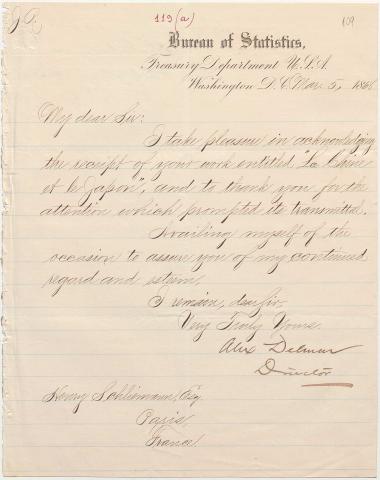 119 (a)
109
Bureau of Statistics,
Treasury Department U.S.A.
Washington D.C. Mar. 5, 186
My dear Sir:
I take pleasure in acknowledging
the receipt of your work entitled "La Chine
et le Japon", and to thank you for the
attention which prompted its transmittal.
Availing myself of the
occasion to assure you of my continued
regard and esteem,
I remain, dear Sir,
Very Truly Yours.
Alex Delmar
Director
Henry Schliemann, Esq.
Paris,
France